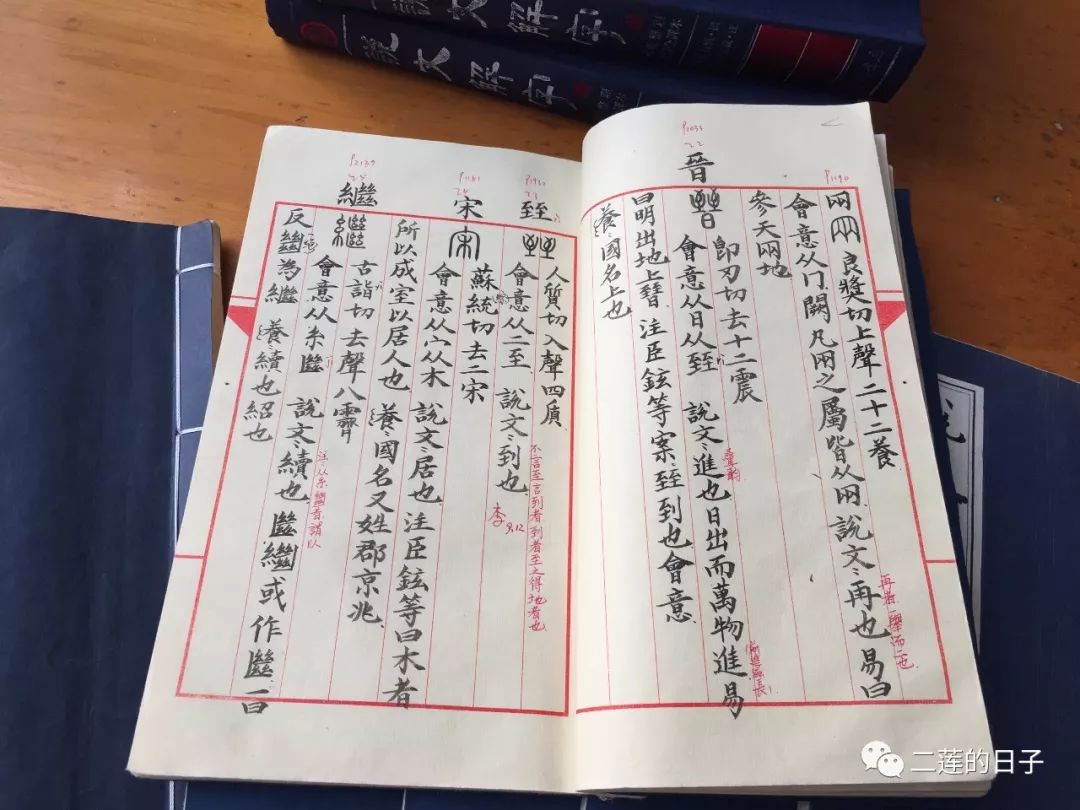 說文解字
說文解字
P1190
兩 良獎切上聲二十二養
會意从冂闕凡兩之屬皆从㒳說文〻再也易曰
參天兩地
再者一舉而二也
P2033
22
晉
即刃切去十二震
會意从日从臸 說文〻進也日出而萬物進易
曰明出地上㬜 注臣鉉等案臸到也會意
養〻國名上也
P1920
23
臸
人質切入聲四質
會意从二至 說文〻到也
不言至言到者到者至之得地者也
李
9.12
P1181
24
宋
蘇統切去二宋
會意从宀从木 說文〻居也 注臣鉉等曰木者
所以成室以居人也 養〻國名又姓郡京兆
P2139
24
繼
古詣切去聲八霽
會意从糸㡭 說文〻續也 㡭繼或作㡭一曰
反㡭為繼 養〻續也紹也
二莲的日子